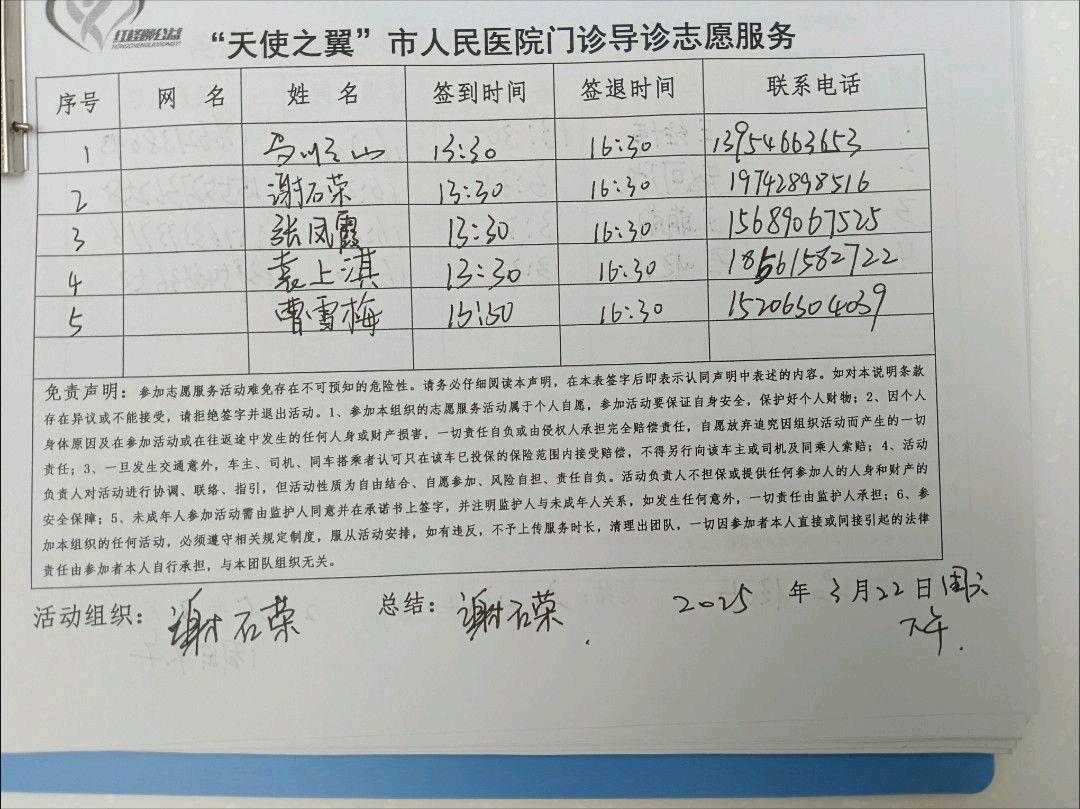 红烛聊公益
HONGCHENGLIAOXIONGYI
“天使之翼”市人民医院门诊导诊志愿服务
序号 网 名 姓 名 签到时间 签退时间 联系电话
1 山 13:30 16:30 13954663653
2 谢石荣 13:30 16:30 19742898516
3 张凤霞 13:30 16:30 15689067525
4 袁上淇 13:30 16:30 18561582722
5 曹雪梅 15:30 16:30 15206304039
免责声明：参加志愿服务活动难免存在不可预知的危险性。请务必仔细阅读本声明，在本表签字后即表示认同声明中表述的内容。如对本说明条款
存在异议或不能接受，请拒绝签字并退出活动。1、参加本组织的志愿服务活动属于个人自愿，参加活动要保证自身安全，保护好个人财物；2、因个人
身体原因及在参加活动或在往返途中发生的任何人身或财产损害，一切责任自负或由侵权人承担完全赔偿责任，自愿放弃追究因组织活动而产生的一切
责任；3、一旦发生交通意外，车主、司机、同车搭乘者认可只在该车已投保的保险范围内接受赔偿，不得另行向该车主或司机及同乘人索赔；4、活动
负责人对活动进行协调、联络、指引，但活动性质为自由结合、自愿参加、风险自担、责任自负。活动负责人不担保或提供任何参加人的人身和财产的
安全保障；5、未成年人参加活动需由监护人同意并在承诺书上签字，并注明监护人与未成年人关系，如发生任何意外，一切责任由监护人承担；6、参
加本组织的任何活动，必须遵守相关规定制度，服从活动安排，如有违反，不予上传服务时长，清理出团队，一切因参加者本人直接或间接引起的法律
责任由参加者本人自行承担，与本团队组织无关。
活动组织：谢石荣 总结：谢石荣 2025 年 3月22日周六
下午.